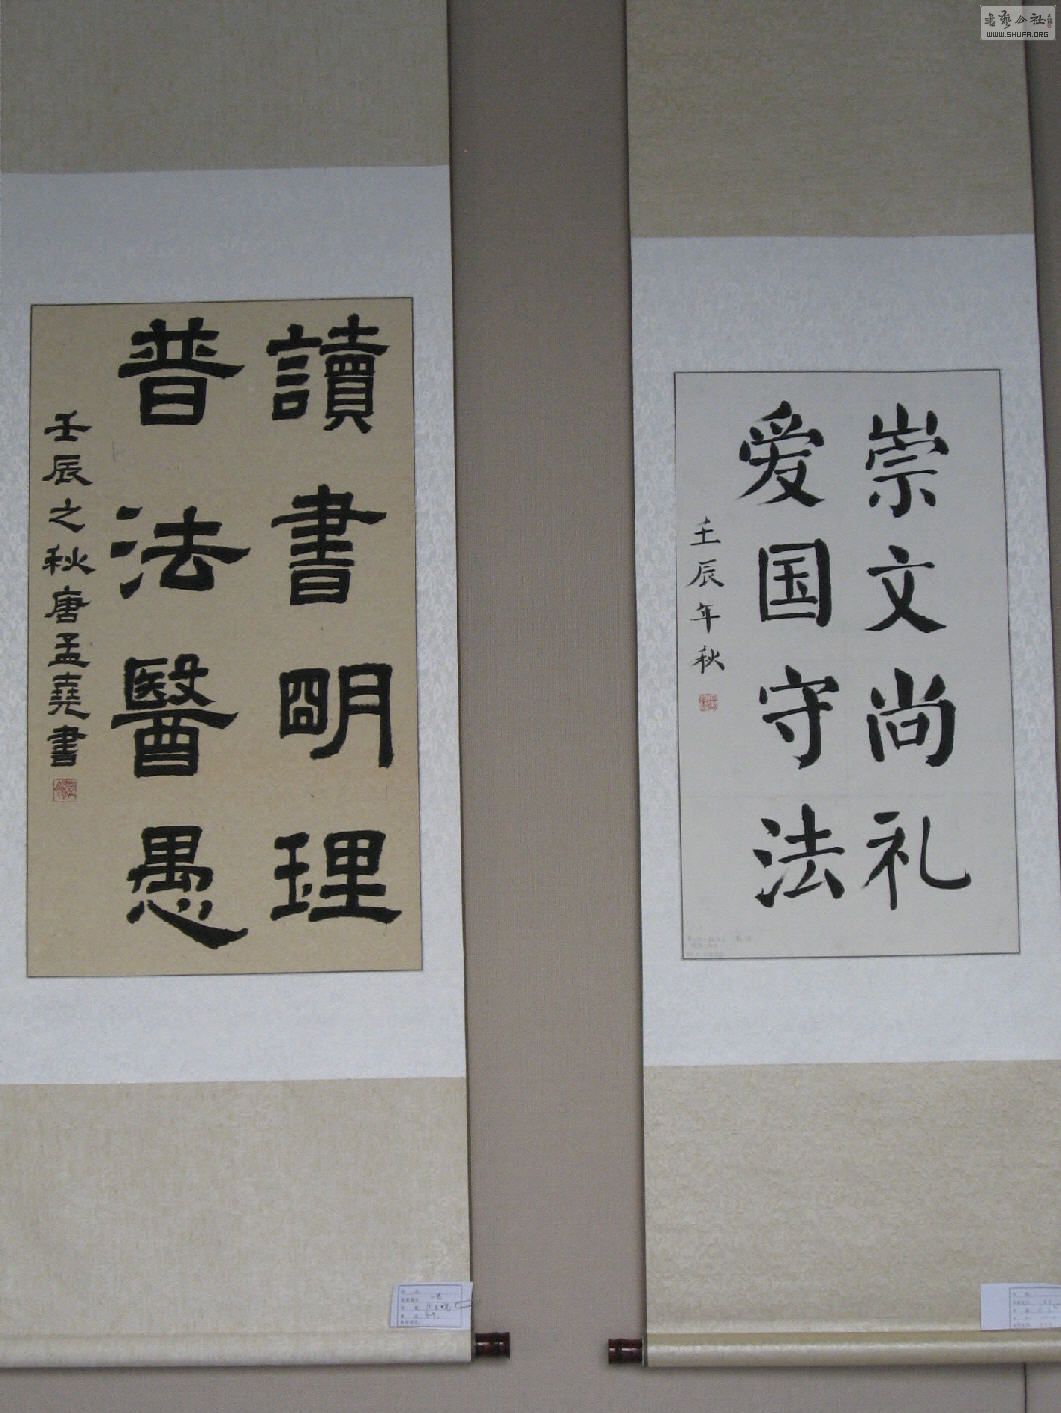 讀書明理
普法醫愚
壬辰之秋唐孟堯書
崇文尚礼
爱国守法
壬辰年秋
书艺公社
WWW.SHUFA.ORG